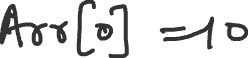 Arr[0] = 10